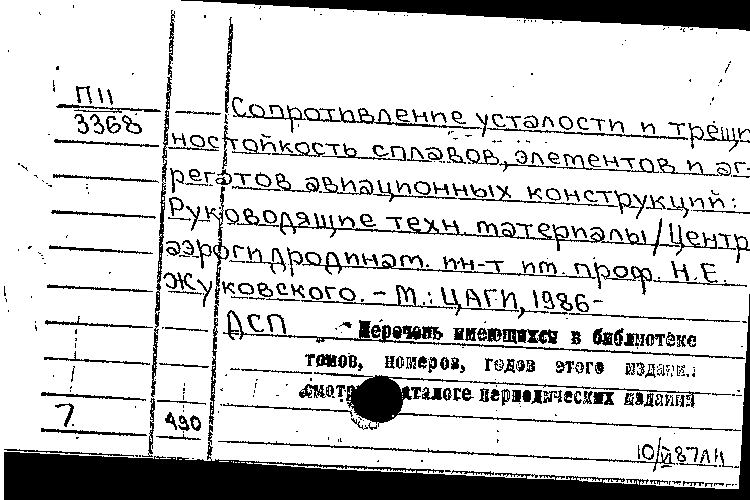 П11
3368
Сопротивление усталости и трещи
ностойкость сплавов, элементов и аг-
регатов авиационных конструкций:
Руководящие техн. материалы / Центр.
аэрогидродинам. ин-т им. проф. Н.Е.
Жуковского. – М.: ЦАГИ, 1986-
ДСП
Перечень имеющихся в библиотеке
томов, номеров, годов этого издания.
смотри каталоге периодических издания
7 490
10/VI 87